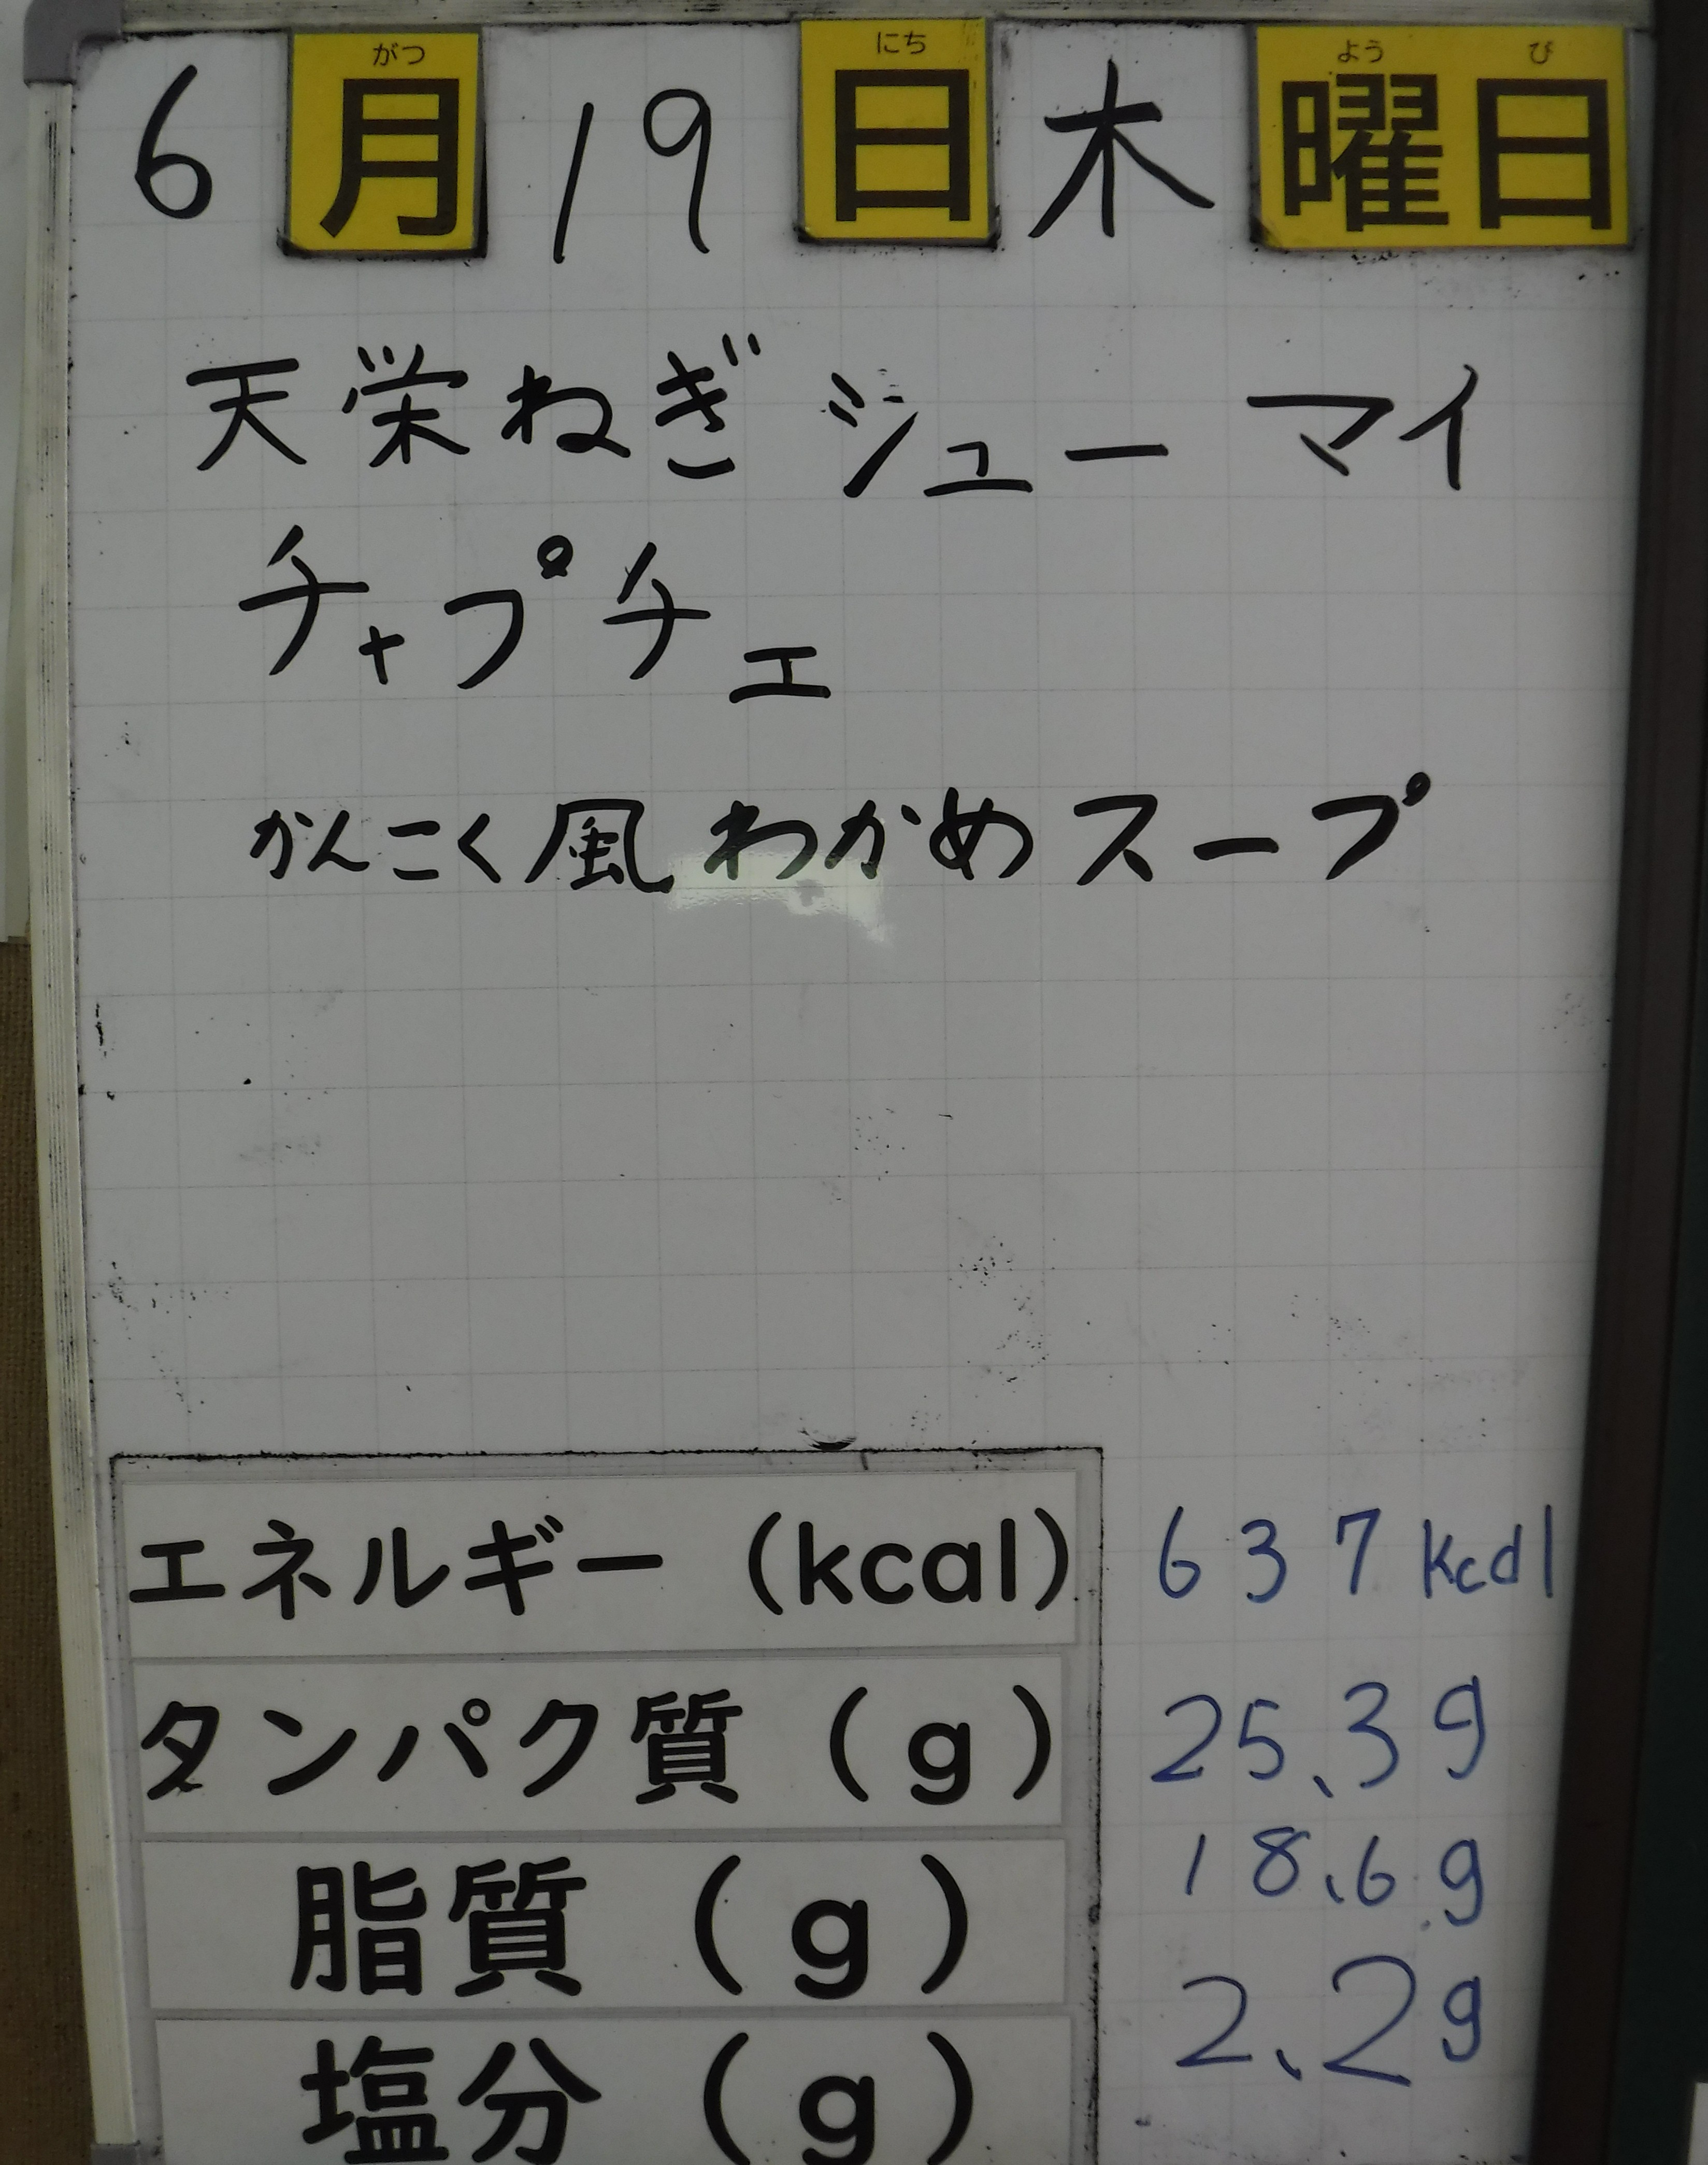 がつ にち よう び
6月19日木曜日
天栄ねぎシューマイ
チャプチェ
かんこく風わかめスープ
エネルギー (kcal) 637kcal
タンパク質 (g) 25.3g
脂質 (g) 18.6g
塩分 (g) 2.2g